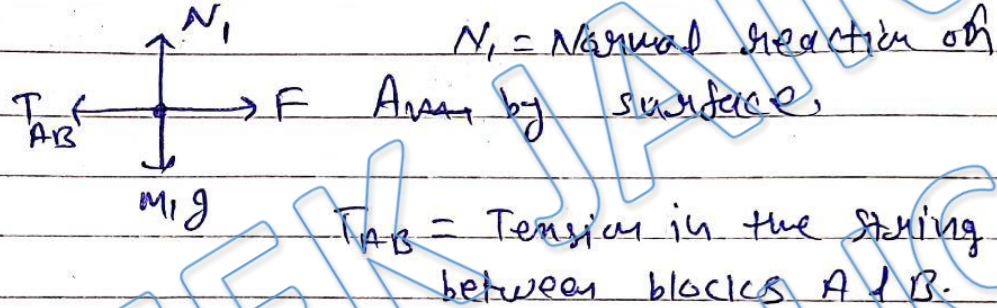 N₁
N₁ = Normal reaction on
T_AB F A by surface,
M₁g
T_AB = Tension in the string
between blocks A & B.